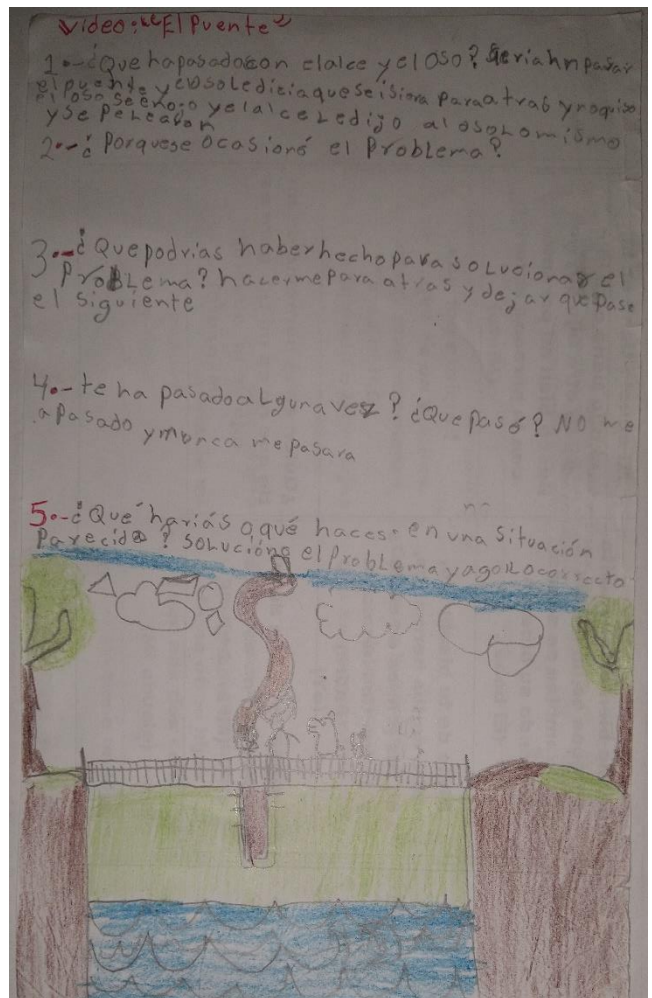 Video: "El Puente"
1.-¿Que ha pasado con el alce y el oso? Qeriahn pasar
el puente y el oso le dicia que se isiera para atras y no quiso
el oso se enojo y el alce Le dijo al oso Lo mismo
y se peLearon
2.-¿Porque se Ocasionó el ProbLema?
3.-¿Que podrias haber hecho para soLucionar el
ProbLema? hacerme para atras y dejar que pase
el siguiente
4.- te ha pasado aLguna vez? ¿Que pasó? NO me
a Pasado y nunca me pasara
5.-¿Qué harías o qué haces en una situación
Parecida? soLucióno el ProbLema y ago lo correcto